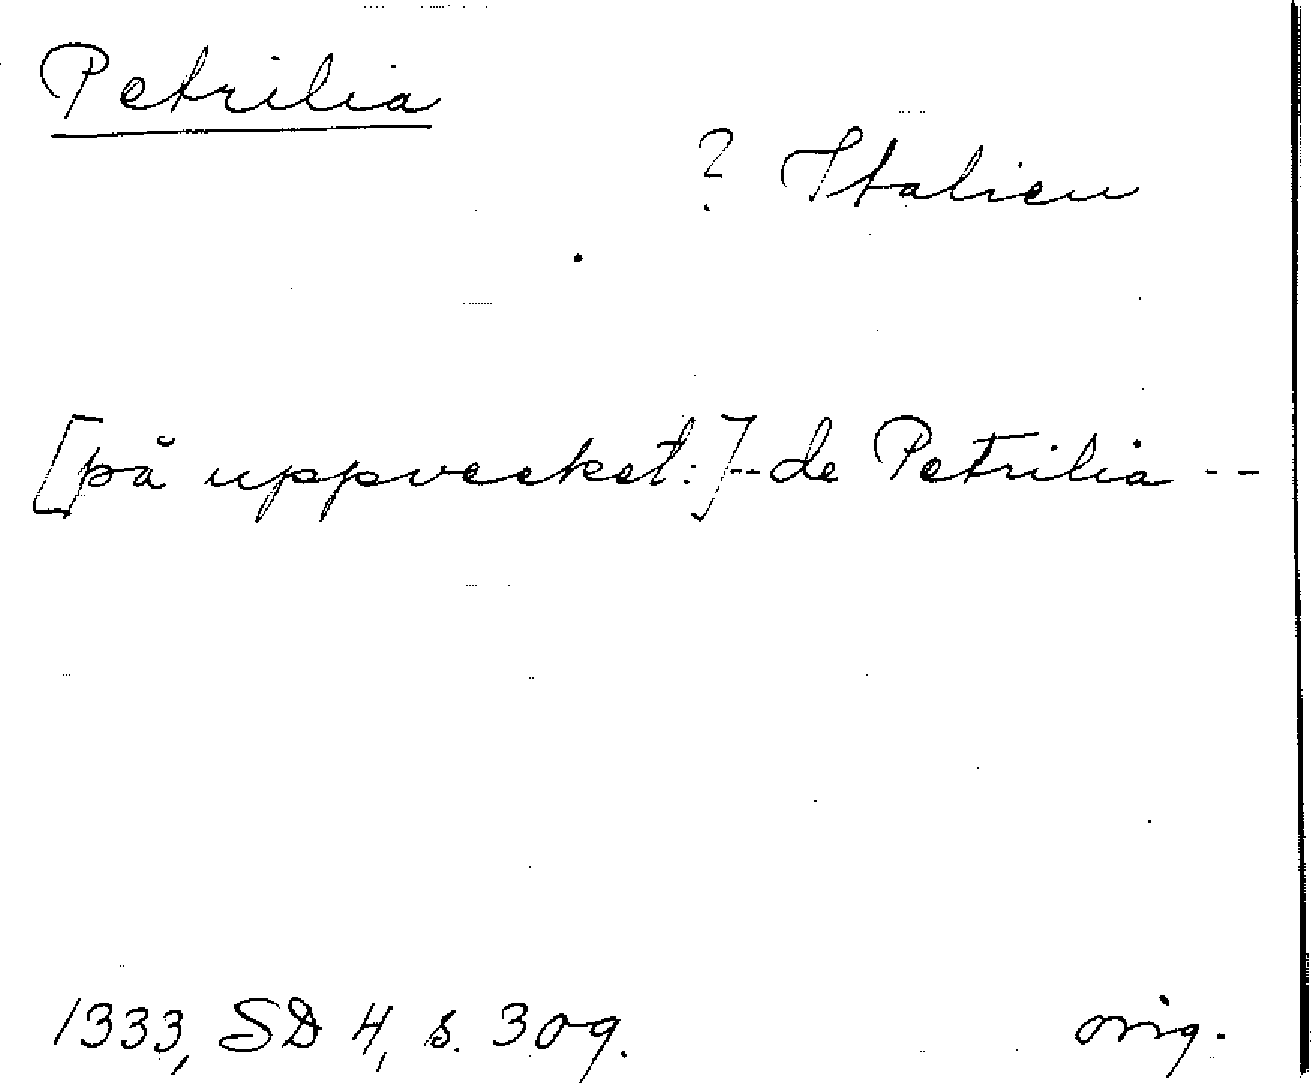 Petrilia
? Italien
[på uppvecket:]--de Petrilia --
1333, SD 4, s. 309. orig.